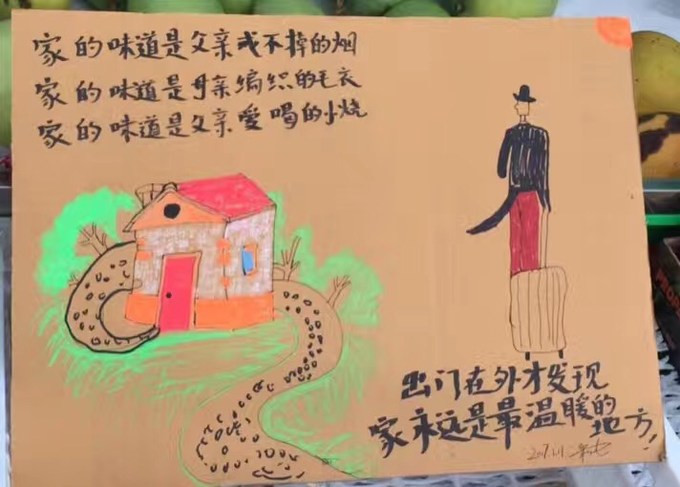 家的味道是父亲戒不掉的烟
家的味道是母亲编织的毛衣
家的味道是父亲爱喝的小烧
出门在外才发现
家永远是最温暖的
地方!